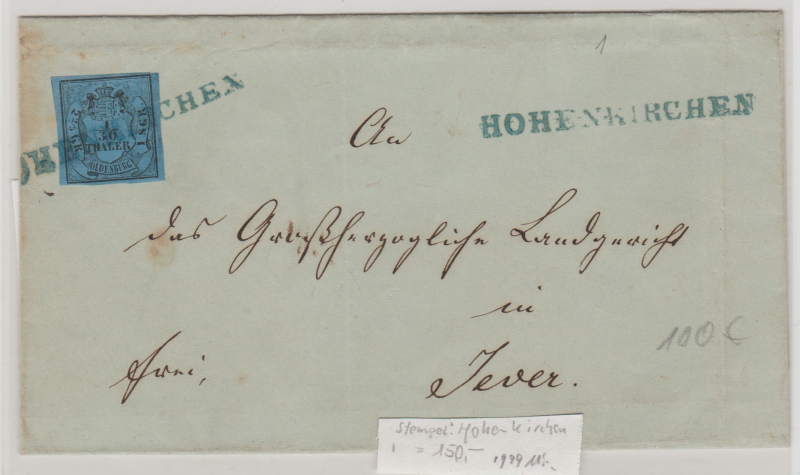 1
HOHENKIRCHEN
HOHENKIRCHEN
1/30
THALER
OLDENBURG
An
das Großherzogliche Landgericht
in
frei,
Jever.
100 €
Stempel: Hohenkirchen
= 150,-